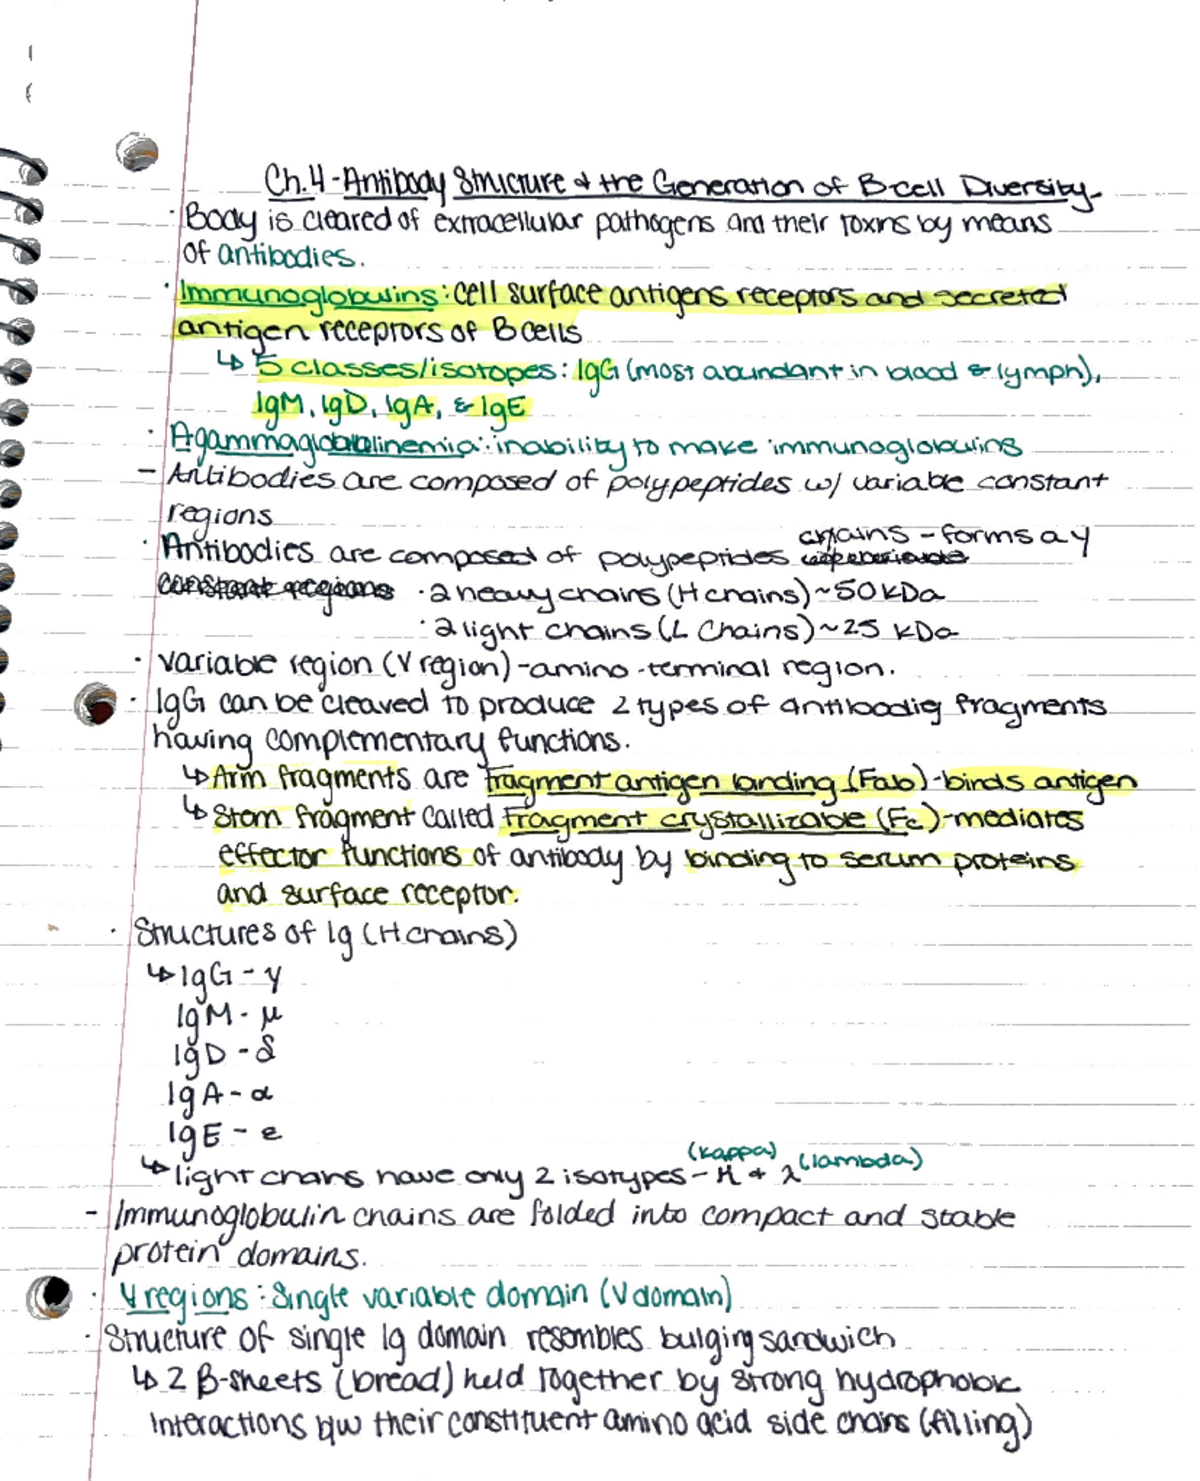 Ch.4-Antibody Structure & the Generation of B cell Diversity
· Body is cleared of extracellular pathogens and their toxins by means
of antibodies.
· Immunoglobulins: cell surface antigens receptors and secreted
antigen receptors of B cells
↳ 5 classes/isotopes: IgG (most abundant in blood & lymph),
IgM, IgD, IgA, & IgE
· Agammaglobulinemia: inability to make immunoglobulins
- Antibodies are composed of polypeptides w/ variable constant
regions
chains - forms a Y
· Antibodies are composed of polypeptides
constant regions · 2 heavy chains (H chains) ~50 kDa
· 2 light chains (L Chains) ~25 kDa
· variable region (V region) - amino-terminal region.
· IgG can be cleaved to produce 2 types of antiboodiy fragments
having complementary functions.
↳ Arm fragments are fragment antigen binding (Fab) - binds antigen
↳ Stem fragment called fragment crystallizable (Fc) - mediates
effector functions of antibody by binding to serum proteins
and surface receptor.
· Structures of Ig (H chains)
↳ IgG - γ
IgM - μ
IgD - δ
IgA - α
IgE - ε
(kappa) (lambda)
↳ light chains have only 2 isotypes - κ + λ
- Immunoglobulin chains are folded into compact and stable
protein domains.
· V regions: Single variable domain (V domain)
· Structure of single Ig domain resembles bulging sandwich
↳ 2 β-sheets (bread) held together by strong hydrophobic
interactions b/w their constituent amino acid side chains (filling)